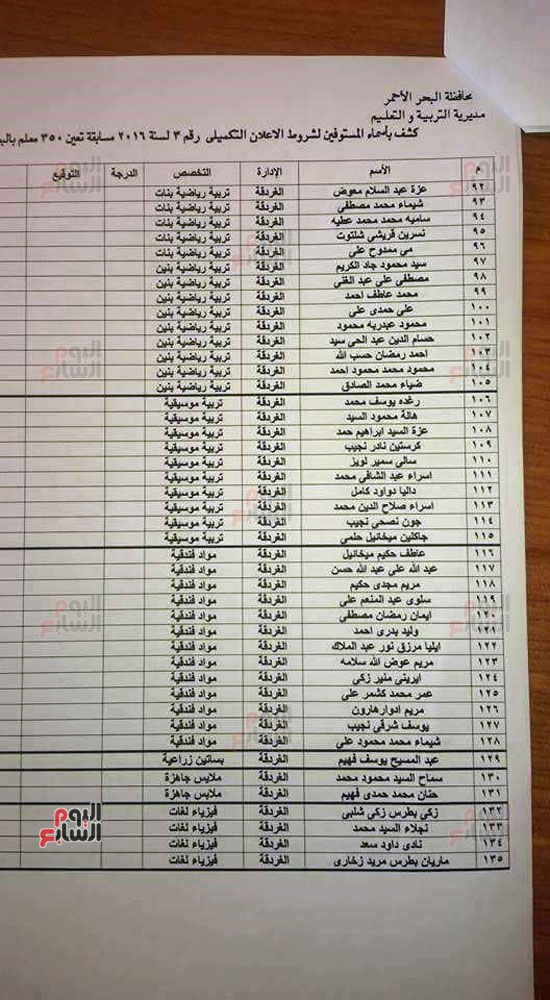 محافظة البحر الأحمر
مديرية التربية و التعليم
كشف بأسماء المستوفين لشروط الاعلان التكميلى رقم ٣ لسنة ٢٠١٦ مسابقة تعين ٣٥٠ معلم
م الأسم الإدارة التخصص الدرجة التوقيع
٩٢ عزة عبد السلام معوض الغردقة تربية رياضية بنات
٩٣ شيماء محمد مصطفى الغردقة تربية رياضية بنات
٩٤ ساميه محمد محمد عطيه الغردقة تربية رياضية بنات
٩٥ نسرين قريشى شلتوت الغردقة تربية رياضية بنات
٩٦ مى ممدوح على الغردقة تربية رياضية بنات
٩٧ سيد محمود جاد الكريم الغردقة تربية رياضية بنين
٩٨ مصطفى على عبد الغنى الغردقة تربية رياضية بنين
٩٩ محمد عاطف احمد الغردقة تربية رياضية بنين
١٠٠ على حمدى على الغردقة تربية رياضية بنين
١٠١ محمود عبدربه محمود الغردقة تربية رياضية بنين
١٠٢ حسام الدين عبد الحى سيد الغردقة تربية رياضية بنين
١٠٣ احمد رمضان حسب الله الغردقة تربية رياضية بنين
١٠٤ محمود محمد محمود احمد الغردقة تربية رياضية بنين
١٠٥ ضياء محمد الصادق الغردقة تربية رياضية بنين
١٠٦ رغده يوسف محمد الغردقة تربية موسيقية
١٠٧ هالة محمود السيد الغردقة تربية موسيقية
١٠٨ عزة السيد ابراهيم حمد الغردقة تربية موسيقية
١٠٩ كرستين نادر نجيب الغردقة تربية موسيقية
١١٠ سالى سمير لويز الغردقة تربية موسيقية
١١١ اسراء عبد الشافى محمد الغردقة تربية موسيقية
١١٢ داليا دواود كامل الغردقة تربية موسيقية
١١٣ اسراء صلاح الدين محمد الغردقة تربية موسيقية
١١٤ جون نصحى نجيب الغردقة تربية موسيقية
١١٥ جاكلين ميخائيل حلمى الغردقة تربية موسيقية
١١٦ عاطف حكيم ميخائيل الغردقة مواد فندقية
١١٧ عبد الله على عبد الله حسن الغردقة مواد فندقية
١١٨ مريم مجدى حكيم الغردقة مواد فندقية
١١٩ سلوى عبد المنعم على الغردقة مواد فندقية
١٢٠ ايمان رمضان مصطفى الغردقة مواد فندقية
١٢١ وليد بدرى احمد الغردقة مواد فندقية
١٢٢ ايليا مرزق نور عبد الملاك الغردقة مواد فندقية
١٢٣ مريم عوض الله سلامه الغردقة مواد فندقية
١٢٤ ايرينى منير زكى الغردقة مواد فندقية
١٢٥ عمر محمد كشمر على الغردقة مواد فندقية
١٢٦ مريم ادوار هارون الغردقة مواد فندقية
١٢٧ يوسف شرقى نجيب الغردقة مواد فندقية
١٢٨ شيماء محمد محمود على الغردقة مواد فندقية
١٢٩ عبد المسيح يوسف فهيم الغردقة بساتين زراعية
١٣٠ سماح السيد محمود محمد الغردقة ملابس جاهزة
١٣١ حنان محمد حمدى فهيم الغردقة ملابس جاهزة
١٣٢ زكى بطرس زكى شلبى الغردقة فيزياء لغات
١٣٣ نجلاء السيد محمد الغردقة فيزياء لغات
١٣٤ نادى داود سعد الغردقة فيزياء لغات
١٣٥ ماريان بطرس مريد زخارى الغردقة فيزياء لغات
اليوم السابع